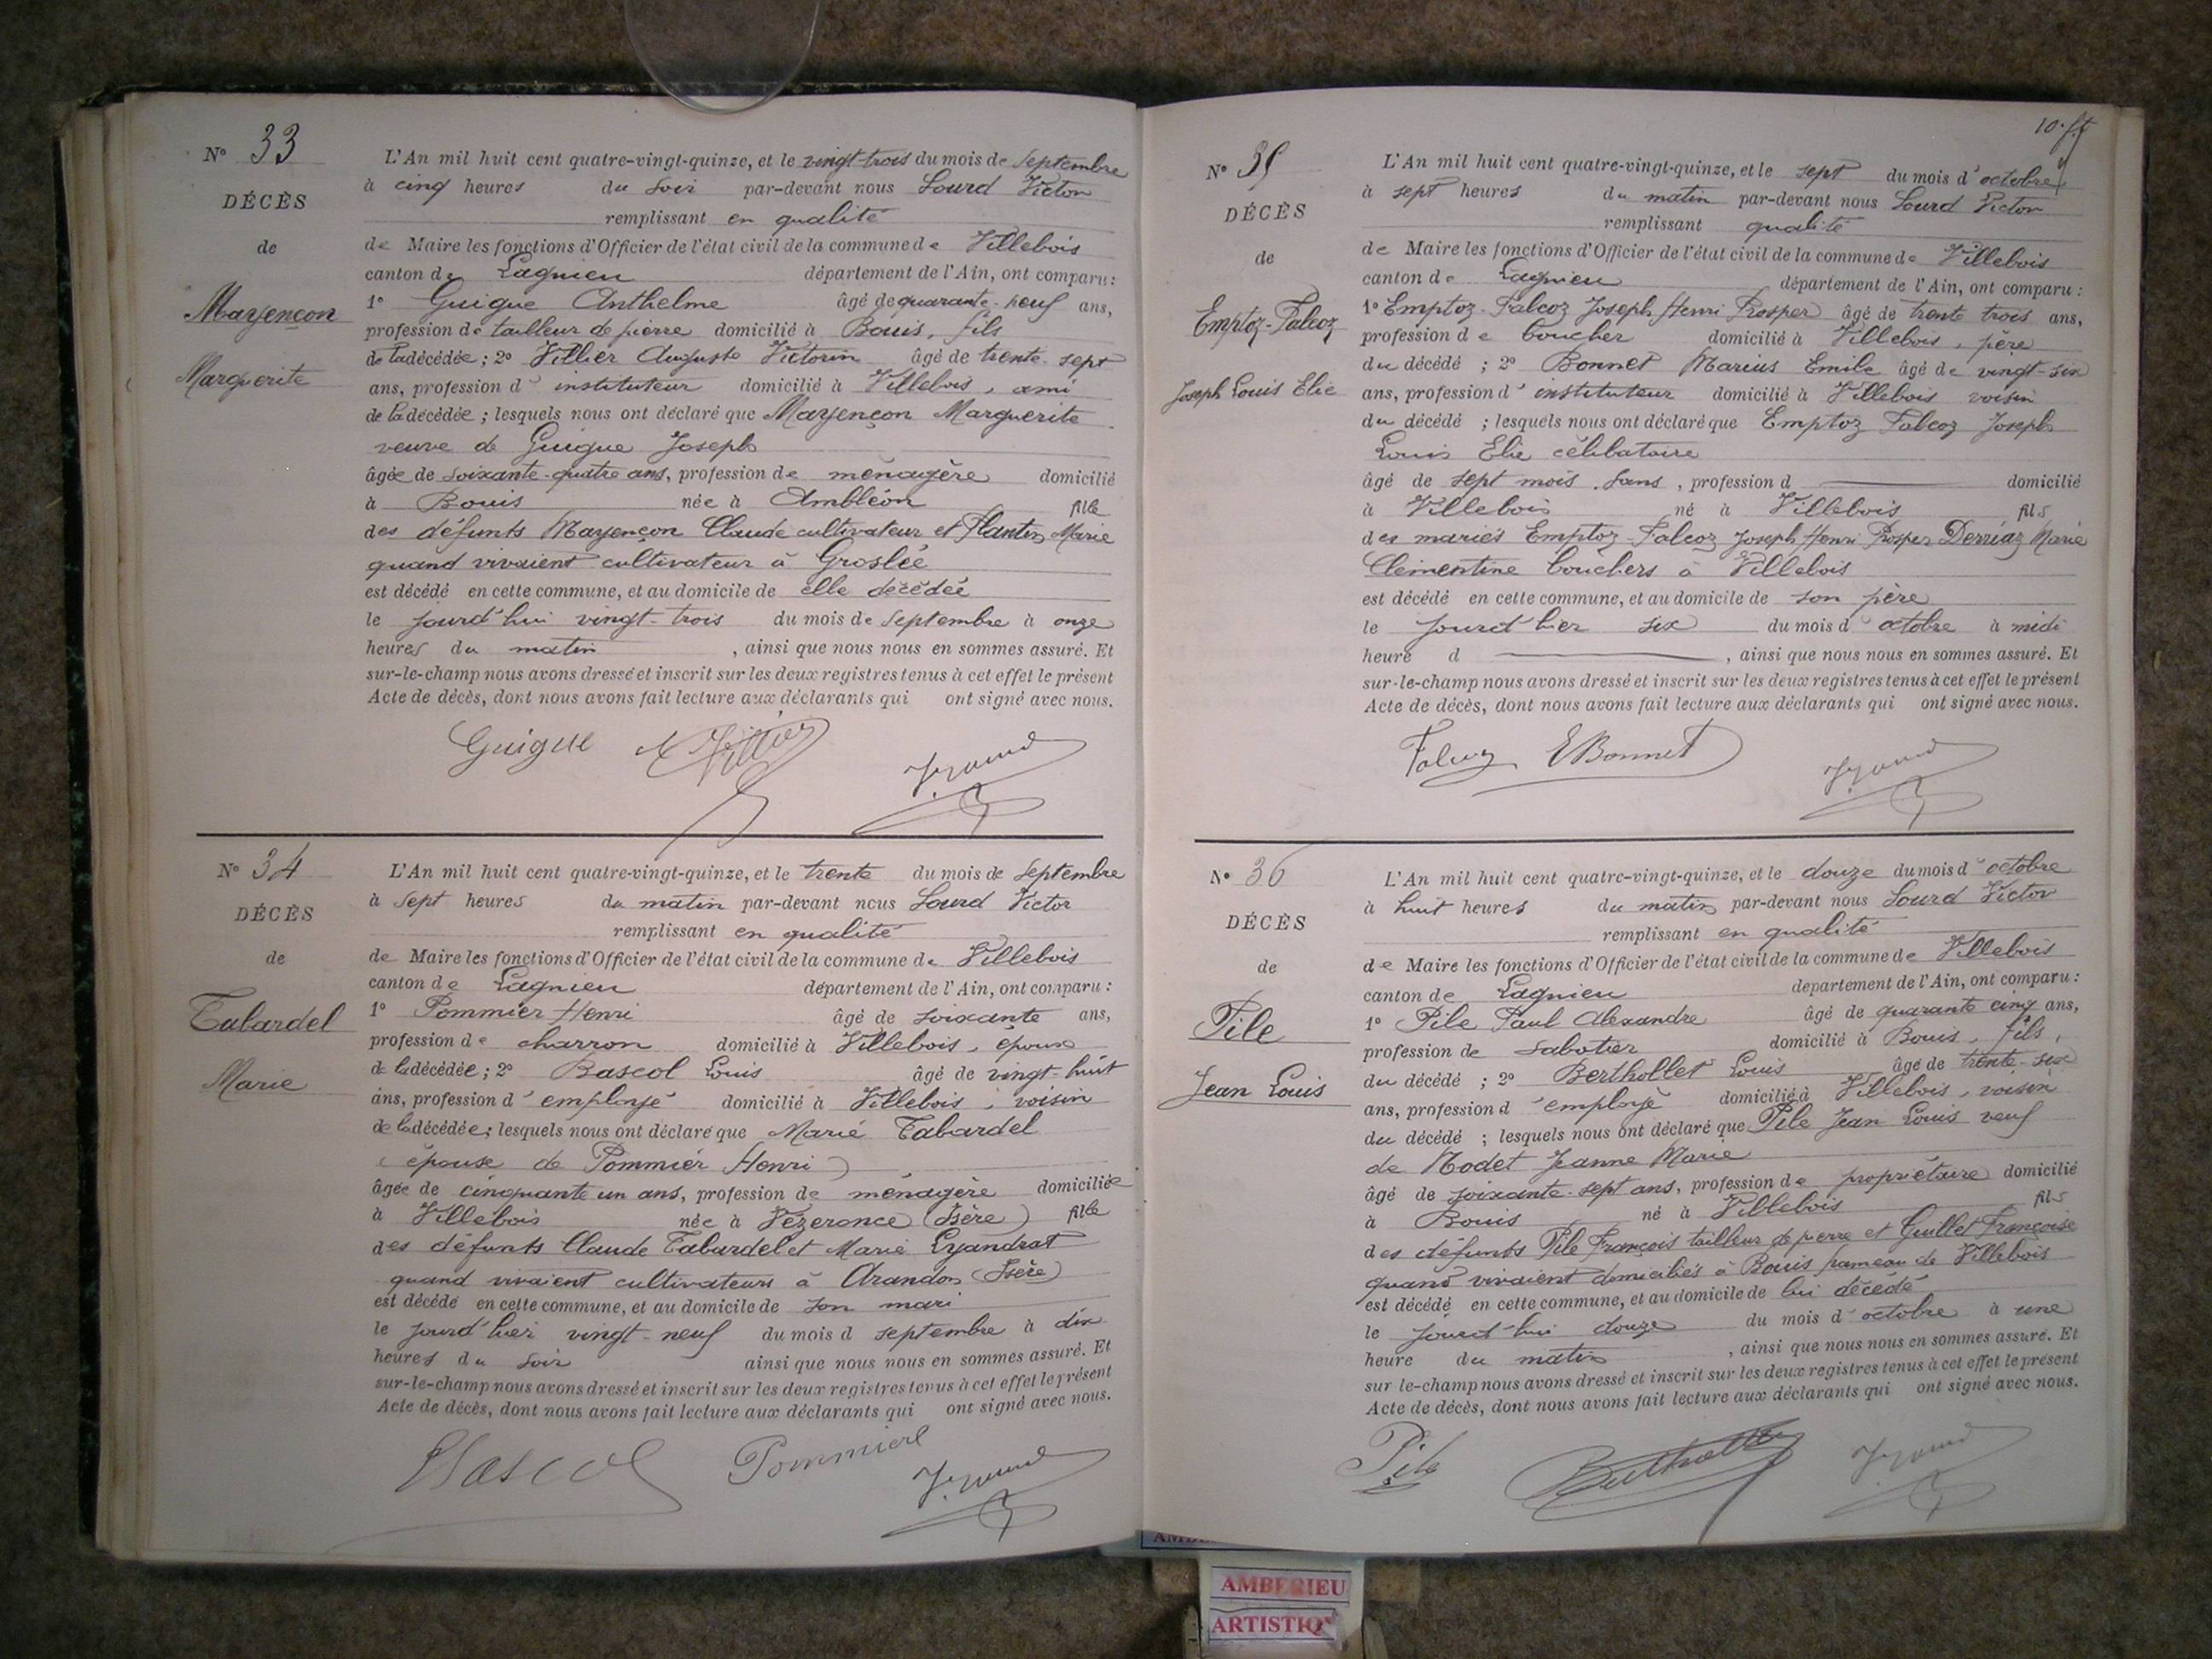 N° 33
DÉCÈS
de
Mayençon
Marguerite
L'An mil huit cent quatre-vingt-quinze, et le vingt-trois du mois de Septembre
à cinq heures du soir par-devant nous Lourd Victor
remplissant en qualité
de Maire les fonctions d'Officier de l'état civil de la commune de Villebois
canton de Lagnieu département de l'Ain, ont comparu :
1° Guigue Anthelme âgé de quarante-neuf ans,
profession de tailleur de pierre domicilié à Bouis, fils
de la décédée ; 2° Villier Auguste Victorin âgé de trente-sept
ans, profession d'instituteur domicilié à Villebois, ami
de la décédée ; lesquels nous ont déclaré que Mayençon Marguerite
veuve de Guigue Joseph
âgée de soixante-quatre ans, profession de ménagère domicilié
à Bouis née à Ambléon fille
des défunts Mayençon Claude cultivateur et Plantin Marie
quand vivaient cultivateur à Groslée
est décédé en cette commune, et au domicile de elle décédée
le jourd'hui vingt-trois du mois de Septembre à onze
heures du matin , ainsi que nous nous en sommes assuré. Et
sur-le-champ nous avons dressé et inscrit sur les deux registres tenus à cet effet le présent
Acte de décès, dont nous avons fait lecture aux déclarants qui ont signé avec nous.
Guigue Villier
N° 34
DÉCÈS
de
Tabardel
Marie
L'An mil huit cent quatre-vingt-quinze, et le trente du mois de Septembre
à sept heures du matin par-devant nous Lourd Victor
remplissant en qualité
de Maire les fonctions d'Officier de l'état civil de la commune de Villebois
canton de Lagnieu département de l'Ain, ont comparu :
1° Pommier Henri âgé de soixante ans,
profession de charron domicilié à Villebois, époux
de la décédée ; 2° Bascol Louis âgé de vingt-huit
ans, profession d'employé domicilié à Villebois, voisin
de la décédée ; lesquels nous ont déclaré que Marie Tabardel
(épouse de Pommier Henri)
âgée de cinquante un ans, profession de ménagère domiciliée
à Villebois née à Vézeronce (Isère) fille
des défunts Claude Tabardel et Marie Lyandrat
quand vivaient cultivateurs à Arandon (Isère)
est décédé en cette commune, et au domicile de son mari
le jourd'hier vingt-neuf du mois d septembre à dix
heures du soir ainsi que nous nous en sommes assuré. Et
sur-le-champ nous avons dressé et inscrit sur les deux registres tenus à cet effet le présent
Acte de décès, dont nous avons fait lecture aux déclarants qui ont signé avec nous.
Bascol Pommier
N° 35
DÉCÈS
de
Emptoz-Falcoz
Joseph Louis Elie
L'An mil huit cent quatre-vingt-quinze, et le sept du mois d'octobre
à sept heures du matin par-devant nous Lourd Victor
remplissant qualité
de Maire les fonctions d'Officier de l'état civil de la commune de Villebois
canton de Lagnieu département de l'Ain, ont comparu :
1° Emptoz-Falcoz Joseph Henri Prosper âgé de trente trois ans,
profession de boucher domicilié à Villebois, père
du décédé ; 2° Bonnet Marius Emile âgé de vingt-six
ans, profession d'instituteur domicilié à Villebois voisin
du décédé ; lesquels nous ont déclaré que Emptoz Falcoz Joseph
Louis Elie célibataire
âgé de sept mois. sans , profession d domicilié
à Villebois né à Villebois fils
des mariés Emptoz-Falcoz Joseph Henri Prosper Derriaz Marie
Clémentine bouchers à Villebois
est décédé en cette commune, et au domicile de son père
le jourd'hier six du mois d'octobre à midi
heure d , ainsi que nous nous en sommes assuré. Et
sur-le-champ nous avons dressé et inscrit sur les deux registres tenus à cet effet le présent
Acte de décès, dont nous avons fait lecture aux déclarants qui ont signé avec nous.
Falcoz EBonnet
N° 36
DÉCÈS
de
Pile
Jean Louis
L'An mil huit cent quatre-vingt-quinze, et le douze du mois d'octobre
à huit heures du matin par-devant nous Lourd Victor
remplissant en qualité
de Maire les fonctions d'Officier de l'état civil de la commune de Villebois
canton de Lagnieu département de l'Ain, ont comparu :
1° Pile Paul Alexandre âgé de quarante cinq ans,
profession de sabotier domicilié à Bouis, fils,
du décédé ; 2° Berthollet Louis âgé de trente-six
ans, profession d'employé domicilié à Villebois, voisin
du décédé ; lesquels nous ont déclaré que Pile Jean Louis veuf
de Nodet Jeanne Marie
âgé de soixante-sept ans, profession de propriétaire domicilié
à Bouis né à Villebois fils
des défunts Pile François tailleur de pierre et Guillet Françoise
quand vivaient domiciliés à Bouis hameau de Villebois
est décédé en cette commune, et au domicile de lui décédé
le jourd'hui douze du mois d'octobre à une
heure du matin , ainsi que nous nous en sommes assuré. Et
sur le-champ nous avons dressé et inscrit sur les deux registres tenus à cet effet le présent
Acte de décès, dont nous avons fait lecture aux déclarants qui ont signé avec nous.
Pile Berthollet
AMBERIEU
ARTISTIQ